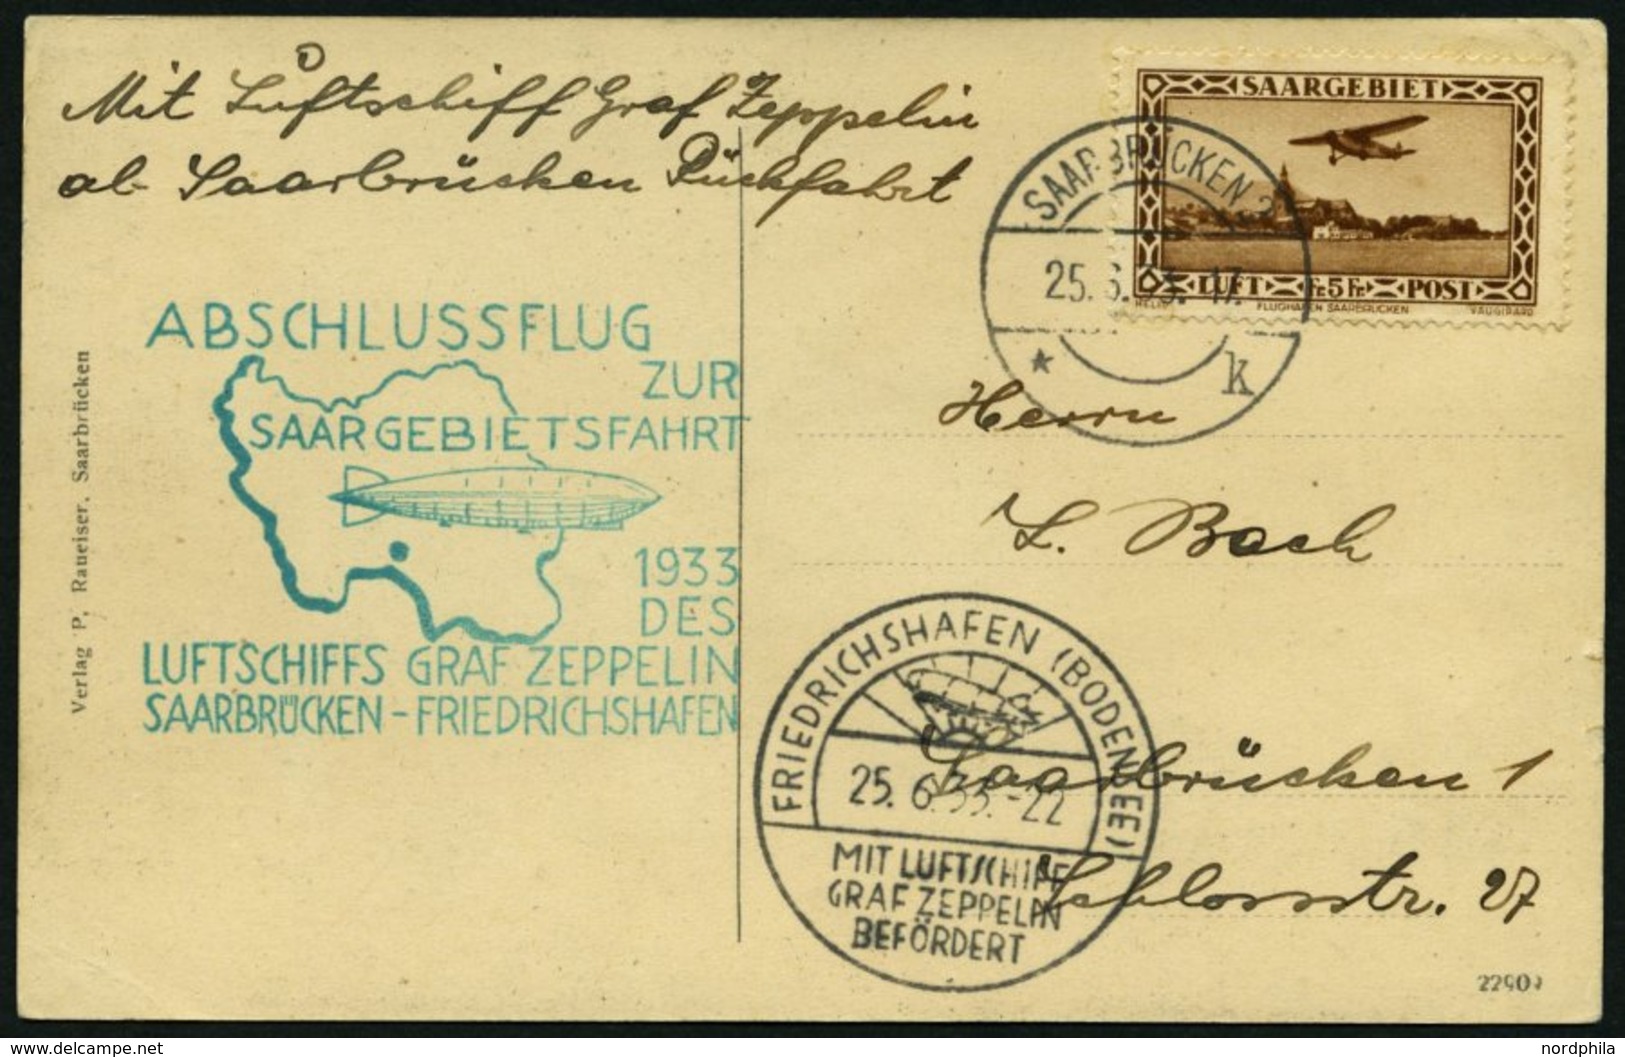 Mit Luftschiff Graf Zeppelin
ab Saarbrücken Rückfahrt
SAARGEBIET
LUFT Fr. 5 Fr. POST
HELIO VAUGIRARD
FLUGHAFEN SAARBRÜCKEN
SAARBRÜCKEN 2
25. 6. 33. 17.
* k
ABSCHLUSSFLUG
ZUR
SAARGEBIETSFAHRT
1933
DES
LUFTSCHIFFS GRAF ZEPPELIN
SAARBRÜCKEN - FRIEDRICHSHAFEN
Verlag P. Raueiser, Saarbrücken
Herrn
L. Bach
Saarbrücken 1
Schlossstr. 27
FRIEDRICHSHAFEN (BODENSEE)
25. 6. 33. -22
MIT LUFTSCHIFF
GRAF ZEPPELIN
BEFÖRDERT
www.delcampe.net
nordphila